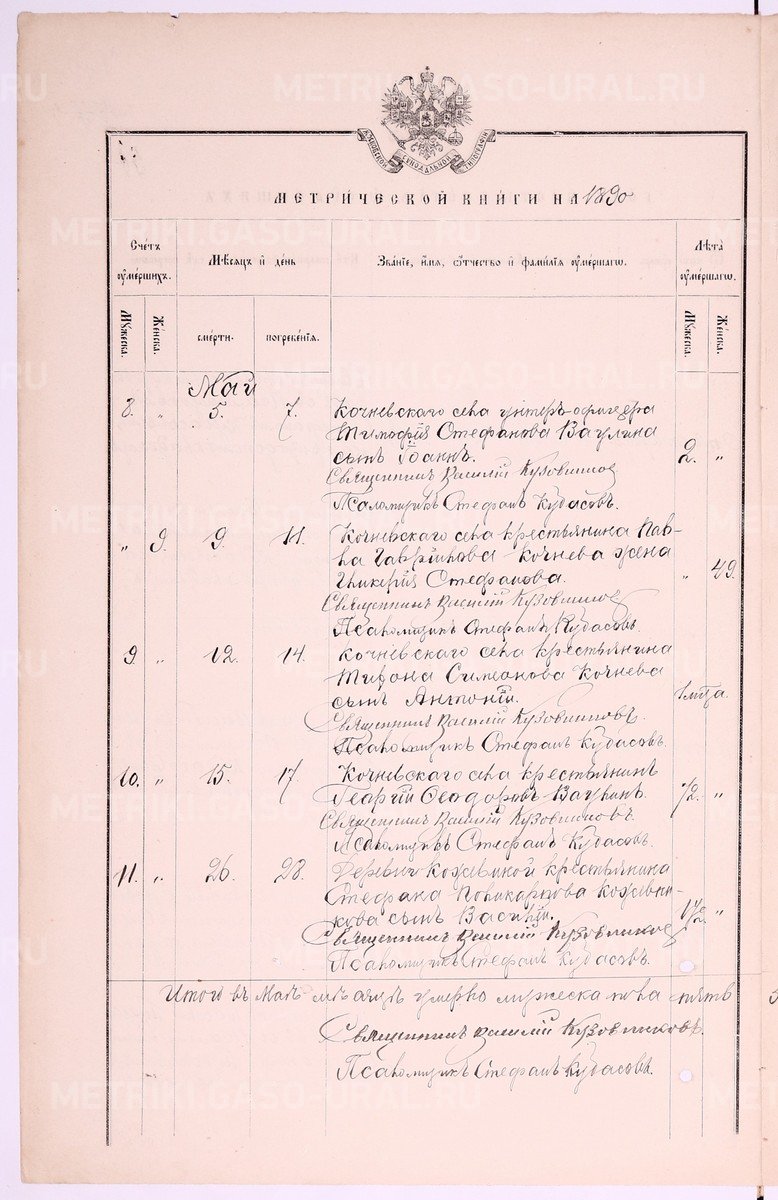 METRIKI.GASO-URAL.RU
МОСКОВСКОЙ СѴНОДАЛЬНОЙ ТИПОГРАФІИ
МЕТРИ́ЧЕСКОЙ КНИ́ГИ НА 1890
Счетъ ᲂумéршихъ.
Мѣсяцъ и҆ дéнь
Звáнїе, и҆́мѧ, ѻ҆́тчество и҆ фами́лїѧ ᲂумéршагѡ.
Лѣ́та ᲂумéршагѡ.
Мꙋжеска.
Жéнска.
смéрти.
погребéнїѧ.
Мꙋжеска.
Жéнска.
Май
8. „ 5. 7. Кочневскаго села унтеръ-офицера
Тимофея Стефанова Ваулина
сынъ Іоаннъ. 2. „
Священникъ Василій Кузовников
Псаломщикъ Стефанъ Кубасовъ.
„ 9. 9. 11. Кочневскаго села крестьянина Пав-
ла Гаврилова Кочнева жена
Гликерія Стефанова. „ 49.
Священникъ Василій Кузовников
Псаломщикъ Стефанъ Кубасовъ.
9. „ 12. 14. Кочневскаго села крестьянина
Тифона Симеонова Кочнева
сынъ Антоній. 1 мѣсца.
Священникъ Василій Кузовниковъ.
Псаломщикъ Стефанъ Кубасовъ.
10. „ 15. 17. Кочневскаго села крестьянинъ
Георгій Ѳеодоровъ Ваулинъ. 72. „
Священникъ Василій Кузовниковъ.
Псаломщикъ Стефанъ Кубасовъ.
11. „ 26. 28. Деревни Кожевиной крестьянина
Стефана Поликарпова Кожевни-
кова сынъ Василій. 1 1/2. „
Священникъ Василій Кузовников
Псаломщикъ Стефанъ Кубасовъ.
Итого въ Маѣ мѣсяцѣ умерло мужеска пола пять
Священникъ Василій Кузовниковъ.
Псаломщикъ Стефанъ Кубасовъ.